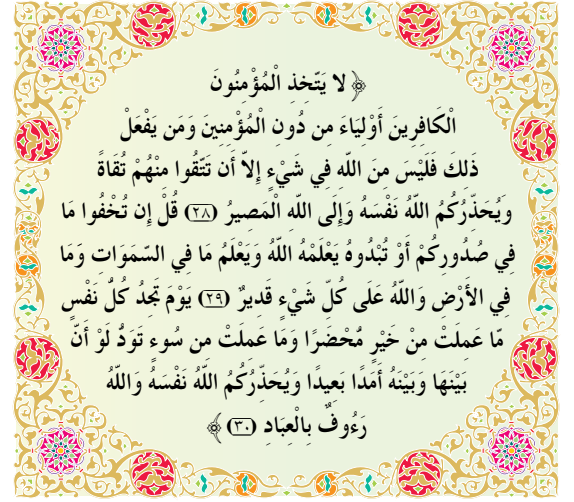 ﴿لا يَتّخِذِ الْمُؤْمِنُونَ
الْكَافِرِينَ أَوْلِيَاءَ مِن دُونِ الْمُؤْمِنِينَ وَمَن يَفْعَلْ
ذلِكَ فَلَيْسَ مِنَ اللّهِ فِي شَيْءٍ إِلاّ أَن تَتّقُوا مِنْهُمْ تُقَاةً
وَيُحَذّرُكُمُ اللّهُ نَفْسَهُ وَإِلَى اللّهِ الْمَصِيرُ (٢٨) قُلْ إِن تُخْفُوا مَا
فِي صُدُورِكُمْ أَوْ تُبْدُوهُ يَعْلَمْهُ اللّهُ وَيَعْلَمُ مَا فِي السّمَوَاتِ وَمَا
فِي الأَرْضِ وَاللّهُ عَلَى كُلّ شَيْءٍ قَدِيرٌ (٢٩) يَوْمَ تَجِدُ كُلّ نَفْسٍ
مّا عَمِلَتْ مِنْ خَيْرٍ مُّحْضَرًا وَمَا عَمِلَتْ مِن سُوءٍ تَوَدّ لَوْ أَنّ
بَيْنَهَا وَبَيْنَهُ أَمَدًا بَعِيدًا وَيُحَذّرُكُمُ اللّهُ نَفْسَهُ وَاللّهُ
رَءُوفٌ بِالْعِبَادِ (٣٠)﴾